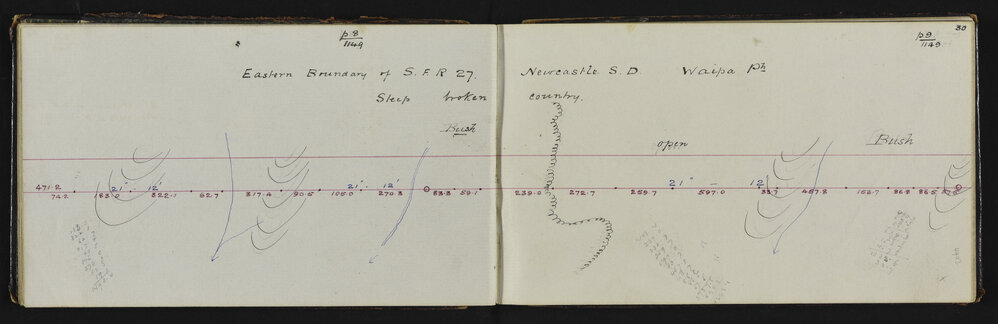 p 8
1149
Eastern Boundary of S.F.R 27.
Steep broken
Bush
471.2
74.2 183.0 21° 12' 322.1 62.7 317.4 90.5 105.0 21° 12' 270.3 83.8 59.1
30
p 9
1149
Newcastle S.D. Waipa Ph
country.
open
Bush
239.0 272.7 259.7 21° 597.0 12' 33.7 457.8 153.7 86.8 86.5